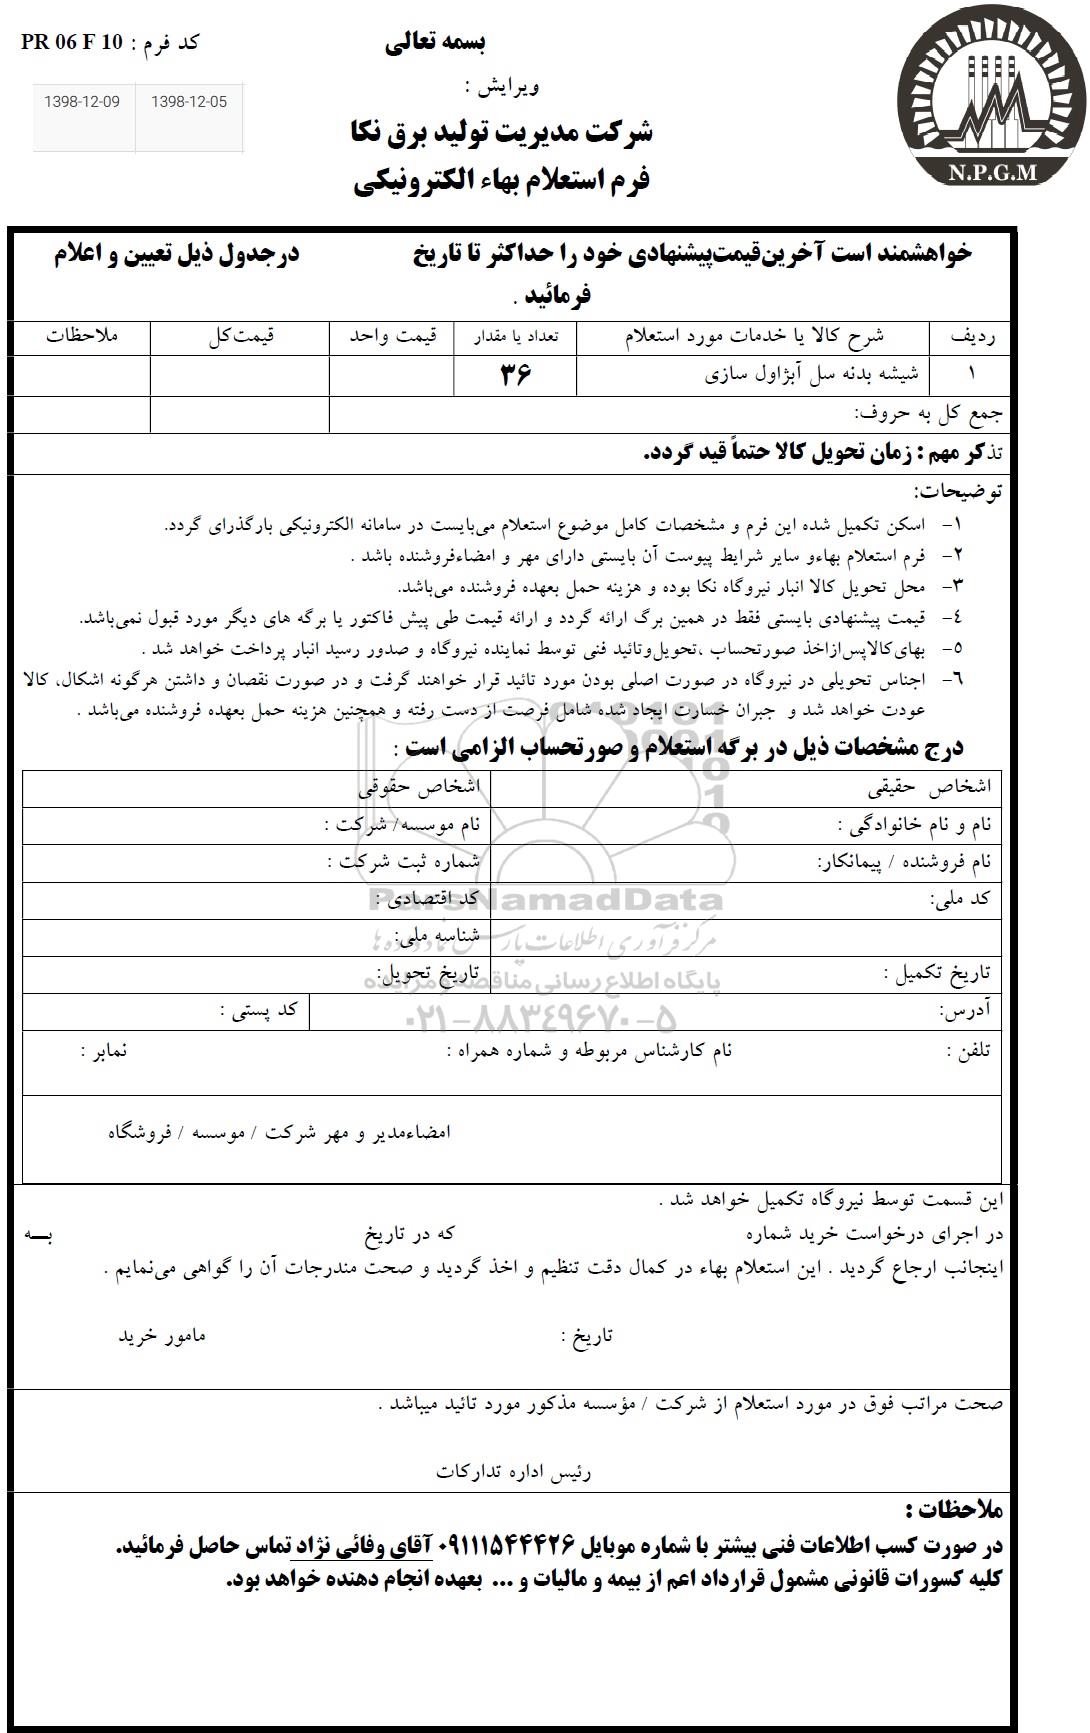 بسمه تعالی
کد فرم : PR 06 F 10
ویرایش :
1398-12-09 1398-12-05
شرکت مدیریت تولید برق نکا
فرم استعلام بهاء الکترونیکی
N.P.G.M
خواهشمند است آخرین‌قیمت‌پیشنهادی خود را حداکثر تا تاریخ درجدول ذیل تعیین و اعلام
فرمائید .
ردیف شرح کالا یا خدمات مورد استعلام تعداد یا مقدار قیمت واحد قیمت‌کل ملاحظات
۱ شیشه بدنه سل آبژاول سازی ۳۶
جمع کل به حروف:
تذکر مهم : زمان تحویل کالا حتماً قید گردد.
توضیحات:
۱- اسکن تکمیل شده این فرم و مشخصات کامل موضوع استعلام می‌بایست در سامانه الکترونیکی بارگذرای گردد.
۲- فرم استعلام بهاءو سایر شرایط پیوست آن بایستی دارای مهر و امضاءفروشنده باشد .
۳- محل تحویل کالا انبار نیروگاه نکا بوده و هزینه حمل بعهده فروشنده می‌باشد.
۴- قیمت پیشنهادی بایستی فقط در همین برگ ارائه گردد و ارائه قیمت طی پیش فاکتور یا برگه های دیگر مورد قبول نمی‌باشد.
۵- بهای‌کالاپس‌ازاخذ صورتحساب ،تحویل‌وتائید فنی توسط نماینده نیروگاه و صدور رسید انبار پرداخت خواهد شد .
۶- اجناس تحویلی در نیروگاه در صورت اصلی بودن مورد تائید قرار خواهند گرفت و در صورت نقصان و داشتن هرگونه اشکال، کالا
عودت خواهد شد و جبران خسارت ایجاد شده شامل فرصت از دست رفته و همچنین هزینه حمل بعهده فروشنده می‌باشد .
درج مشخصات ذیل در برگه استعلام و صورتحساب الزامی است :
اشخاص حقیقی اشخاص حقوقی
نام و نام خانوادگی : نام موسسه/ شرکت :
نام فروشنده / پیمانکار: شماره ثبت شرکت :
کد ملی: کد اقتصادی :
ParsNamadData
شناسه ملی:
مرکز فرآوری اطلاعات پارس نماد داده ها
تاریخ تکمیل : تاریخ تحویل:
پایگاه اطلاع رسانی مناقصه و مزایده
آدرس: کد پستی :
۰۲۱-۸۸۳۴۹۶۷۰-۵
تلفن : نام کارشناس مربوطه و شماره همراه : نمابر :
امضاءمدیر و مهر شرکت / موسسه / فروشگاه
این قسمت توسط نیروگاه تکمیل خواهد شد .
در اجرای درخواست خرید شماره که در تاریخ بــه
اینجانب ارجاع گردید . این استعلام بهاء در کمال دقت تنظیم و اخذ گردید و صحت مندرجات آن را گواهی می‌نمایم .
تاریخ : مامور خرید
صحت مراتب فوق در مورد استعلام از شرکت / مؤسسه مذکور مورد تائید میباشد .
رئیس اداره تدارکات
ملاحظات :
در صورت کسب اطلاعات فنی بیشتر با شماره موبایل ۰۹۱۱۱۵۴۴۴۲۶ آقای وفائی نژاد تماس حاصل فرمائید.
کلیه کسورات قانونی مشمول قرارداد اعم از بیمه و مالیات و ... بعهده انجام دهنده خواهد بود.